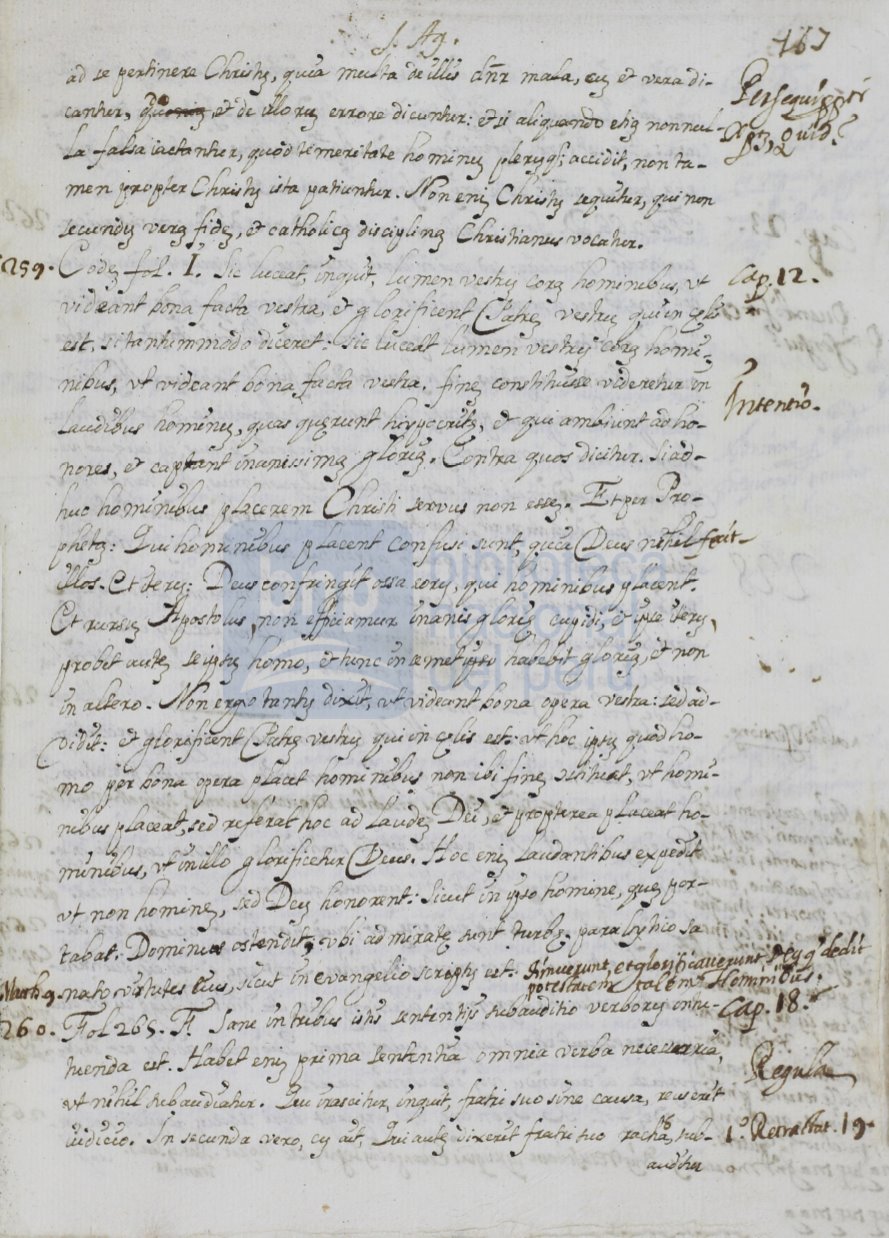 S. Ag.
167
ad se pertinere Christũ, quia multa de illis dñr mala, cũ et vera di-
cantur, et de illorũ errore dicuntur: et si aliquando etiã nonnul-
la falsa iactantur, quod temeritate hominũ plerũqȝ accidit, non ta-
men propter Christũ ista patiuntur. Non enĩ Christũ sequitur, qui non
secundũ verã fidẽ, et catholicã disciplinã Christianus vocatur.
Persequi
Xptũ Quid?
259. Codẽ fol. I. Sic luceat, inquit, lumen vestrũ corã hominibus, vt
cap. 12.
videant bona facta vestra, et glorificent Patrẽ vestrũ qui in cęlis
est. si tantummodo diceret: sic luceat lumen vestrũ corã homi-
nibus, vt videant bona facta vestra. finẽ constituisse videretur in
Intentio.
laudibus hominũ, quas quęrunt hipocritę, et qui ambiunt ad ho-
nores, et captant inanissimã gloriã. Contra quos dicitur. Si ad-
huc hominibus placerem Christi servus non essẽ. Et per Pro-
phetã: Qui hominibus placent confusi sunt, quia Deus nihil fecit
illos. Et iterũ: Deus confringit ossa eorũ, qui hominibus placent.
Et rursũ Apostolus, non efficiamur inanis glorię cupidi, et ipse iterũ,
probet autẽ seipsũ homo, et tunc in semetipso habebit gloriã, et non
in altero. Non ergo tantũ dixit, vt videant bona opera vestra: sed ad-
didit: et glorificent Patrẽ vestrũ qui in cęlis est: vt hoc ipsũ quod ho-
mo per bona opera placet hominibus non ibi finẽ vt homi-
nibus placeat, sed referat hoc ad laudẽ Dei, et propterea placeat ho-
minibus, vt in illo glorificetur Deus. Hoc enĩ laudantibus expedit
vt non hominẽ, sed Deũ honorent: Sicut in ipso homine, quẽ por-
tabat. Dominus ostendit, vbi admiratę sunt turbę paralytico sa
Math 9. nato virtutes eius, sicut in evangelio scriptũ est: timuerunt, et glorificaverunt Deũ q dedit
potestatem talem Hominibus.
260. Fol 265. F. Sane in tribus istis sententijs subauditio verborũ intu-
cap. 18.
tuenda est. Habet enĩ prima sententia omnia verba necessaria,
Regula
vt nihil subaudiatur. Qui irascitur, inquit, fratri suo sine causa, reus erit
iudicio. In secunda vero, cũ ait, Qui autẽ dixerit fratri suo racha, sub-
1.º Retractat. 19.
auditur